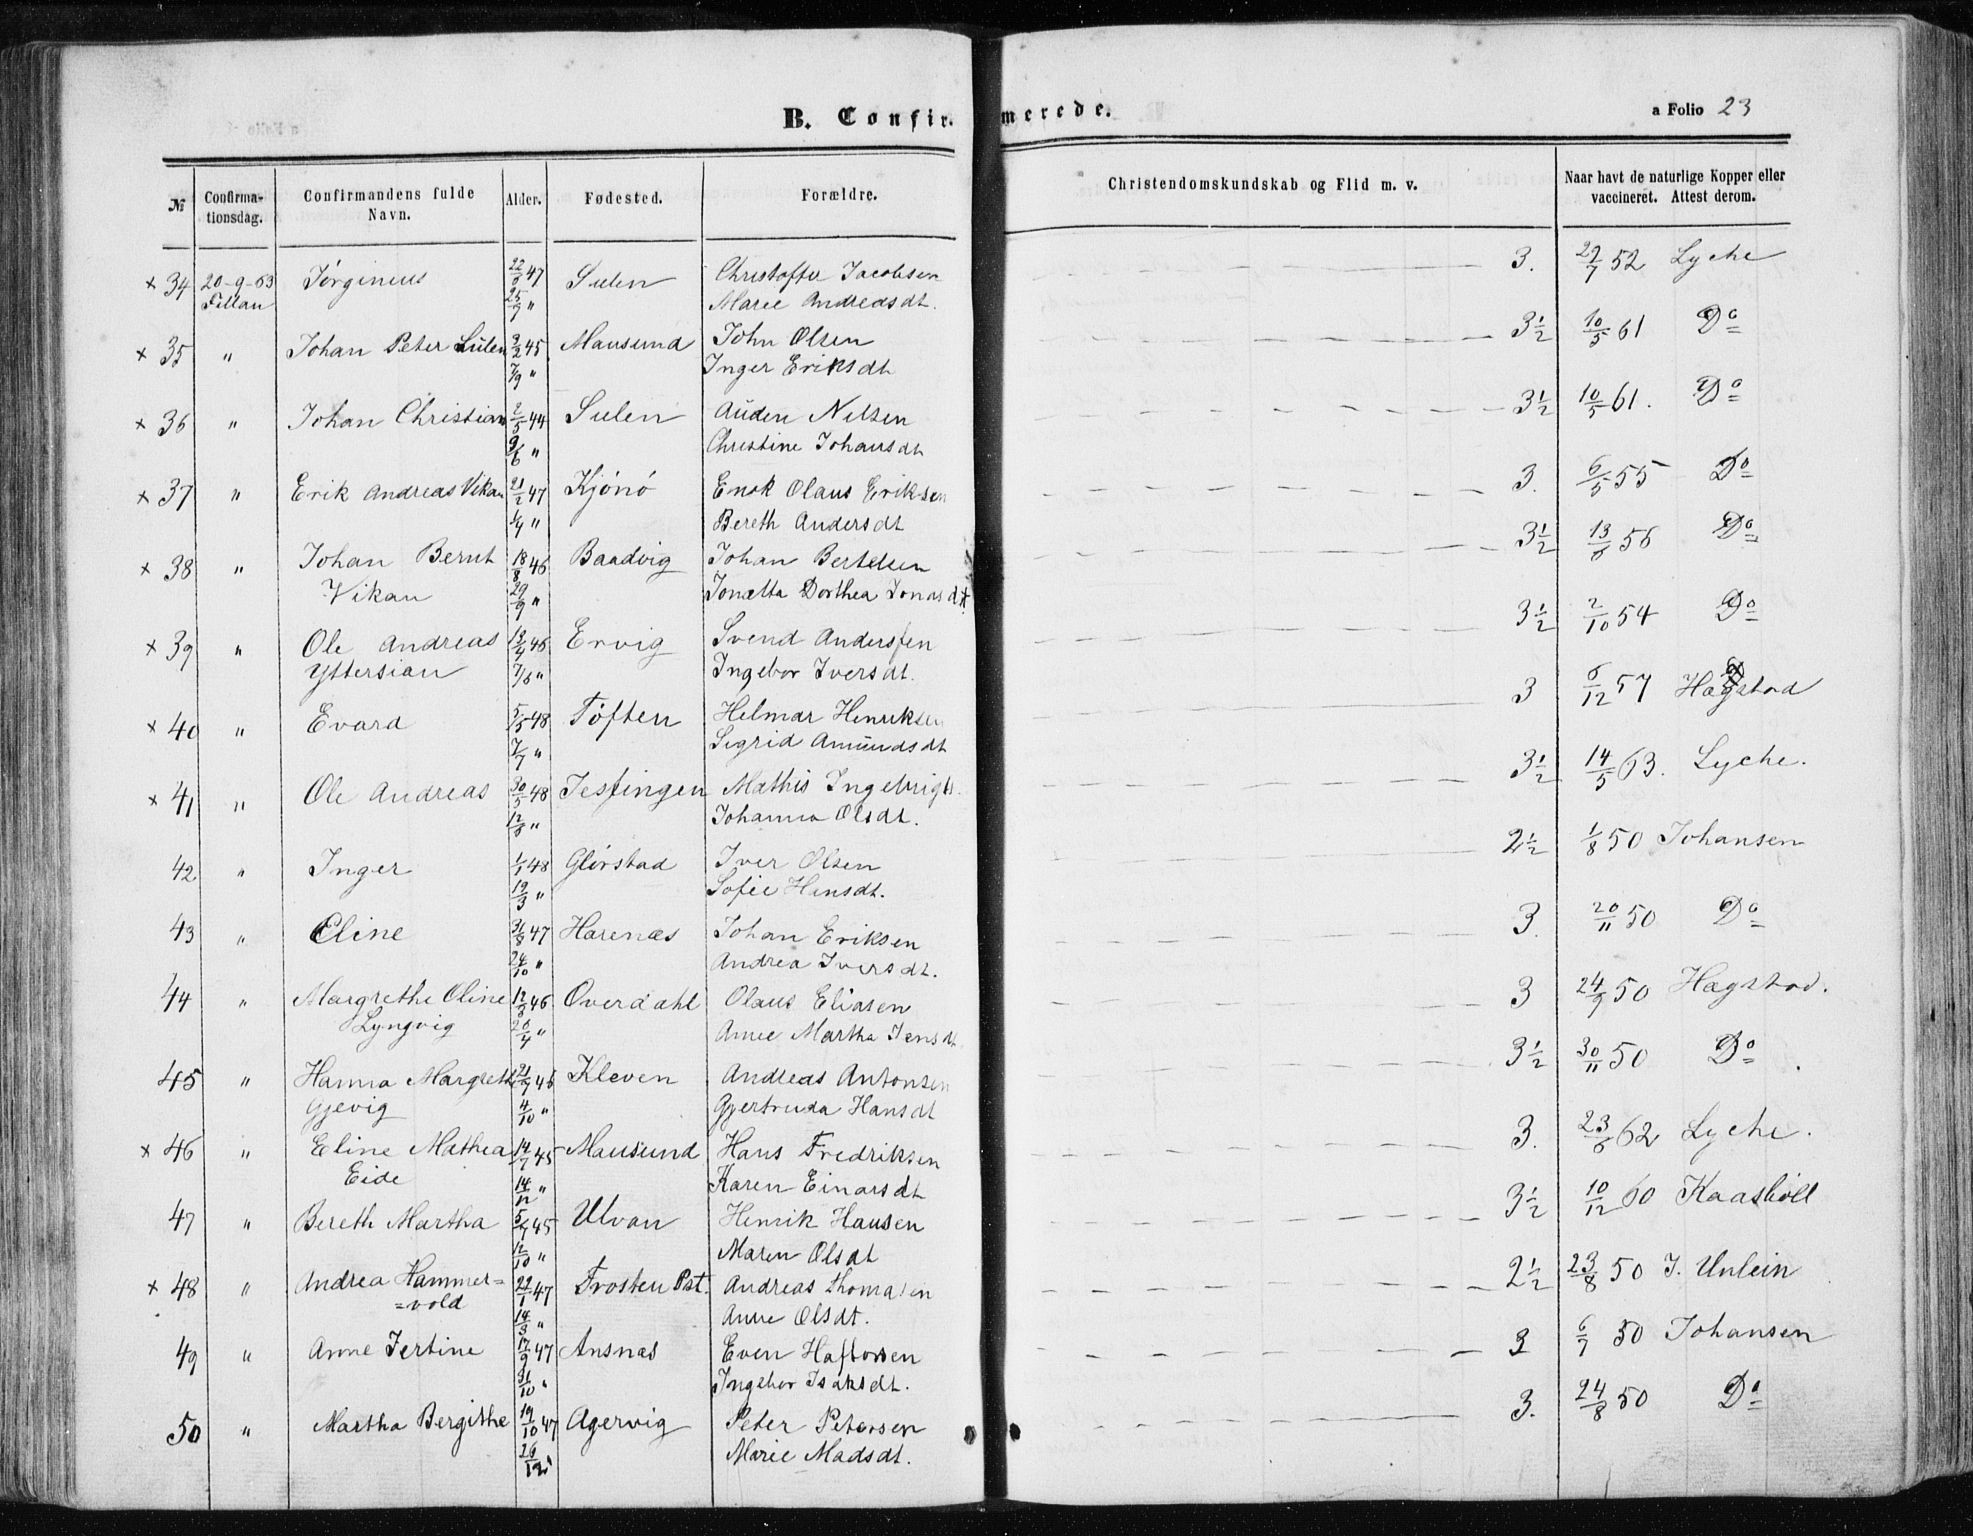 B. Confirmerede.
a Folio 23
№ Confirmationsdag. Confirmandens fulde Navn. Alder. Fødested. Forældre. Christendomskundskab og Flid m. v. Naar havt de naturlige Kopper eller vaccineret. Attest derom.
× 34 20-9-63 Jørgineus 22/6 47 Sulen Christoffer Jacobsen 3. 29/7 52 Lyche
Fillan 25/7 " Marie Andreasdt.
× 35 " Johan Peter Sulen 3/2 45 Mausund John Olsen 3½ 10/5 61 Do
7/9 " Inger Eriksdt
× 36 " Johan Christian 2/5 44 Sulen Auden Nilsen 3½ 10/5 61. Do
9/6 " Christine Johansdt
× 37 " Erik Andreas Vikan 21/2 47 Kjønø Enok Olaus Eriksen 3. 6/5 55 Do
1/4 " Bereth Andersdt
× 38 " Johan Bernt 18/8 46 Baadvig Johan Bertelsen 3½ 13/6 56 Do
Vikan 29/9 " Jonetta Dorthea Jonasdt.
× 39 " Ole Andreas 13/4 46 Ervig Svend Andersen 3½ 2/10 54 Do
Yttersian 7/6 " Ingebor Iversdt.
× 40 " Evard 5/5 48 Tøften Helmar Henriksen 3 6/12 57 Hagstad
7/7 " Sigrid Amundsdt
× 41 " Ole Andreas 30/5 48 Jestingen Mathis Ingebrigts. 3½ 14/5 63. Lyche.
12/8 " Johanna Olsdt.
42 " Inger 1/1 48 Glørstad Iver Olsen 2½ 1/8 50 Johansen
19/3 " Sofie Hansdt.
43 " Eline 31/8 47 Harenæs Johan Eriksen 3. 20/11 50 Do
24/10 " Andrea Iversdt.
44 " Margrethe Oline 12/3 46 Overdahl Olaus Eliasen 3 24/9 50 Hagstad.
Lyngvig 26/4 " Anne Martha Jensdt
45 " Hanna Margreth 21/7 46 Kleven Andreas Antonsen 3½ 30/11 50 Do
Gjevig 4/10 " Gjertruda Hansdt
× 46 " Eline Mathea 14/7 45 Mausund Hans Fredriksen 3. 23/6 62 Lyche.
Eide 14/12 " Karen Einarsdt
47 " Bereth Martha 5/7 45 Ulvan Henrik Hansen 3½ 10/12 60 Kaasbøll
12/10 " Maren Olsdt
× 48 " Andrea Hammer= 22/1 47 Frosten Pst. Andreas Thomasen 2½ 23/8 50 J. Unlein
=vold 14/3 " Anne Olsdt.
49 " Anne Jertine 17/9 47 Ansnæs Even Haftorsen 3 6/7 50 Johansen
31/10 " Ingebor Isaksdt.
50 " Martha Bergithe 19/10 47 Agervig Peter Petersen 3. 24/8 50 Do
26/12 " Marie Madsdt.